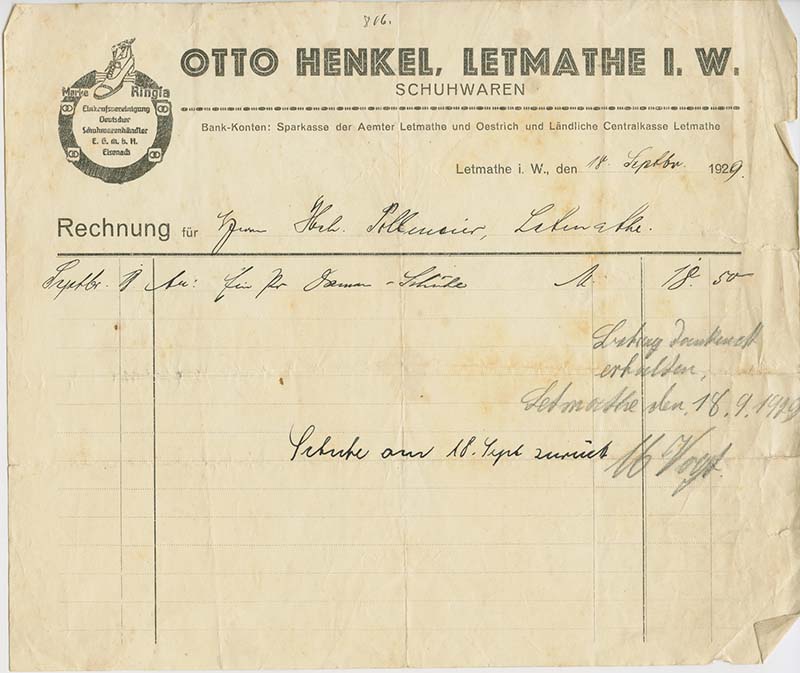 806.
OTTO HENKEL, LETMATHE I. W.
SCHUHWAREN
Marke Ringfa
Einkaufsvereinigung
Deutscher
Schuhwarenhändler
E. G. m. b. H.
Eisenach
Bank-Konten: Sparkasse der Aemter Letmathe und Oestrich und Ländliche Centralkasse Letmathe
Letmathe i. W., den 18. Septbr. 1929.
Rechnung für Herrn Hch. Letmathe.
Septbr. An: Ein Pr Damen-Schuhe M. 18. 50
Betrag dankend
erhalten,
Letmathe den, 18. 9. 1929
Schuhe am 18. Sept zurück
Vogt.